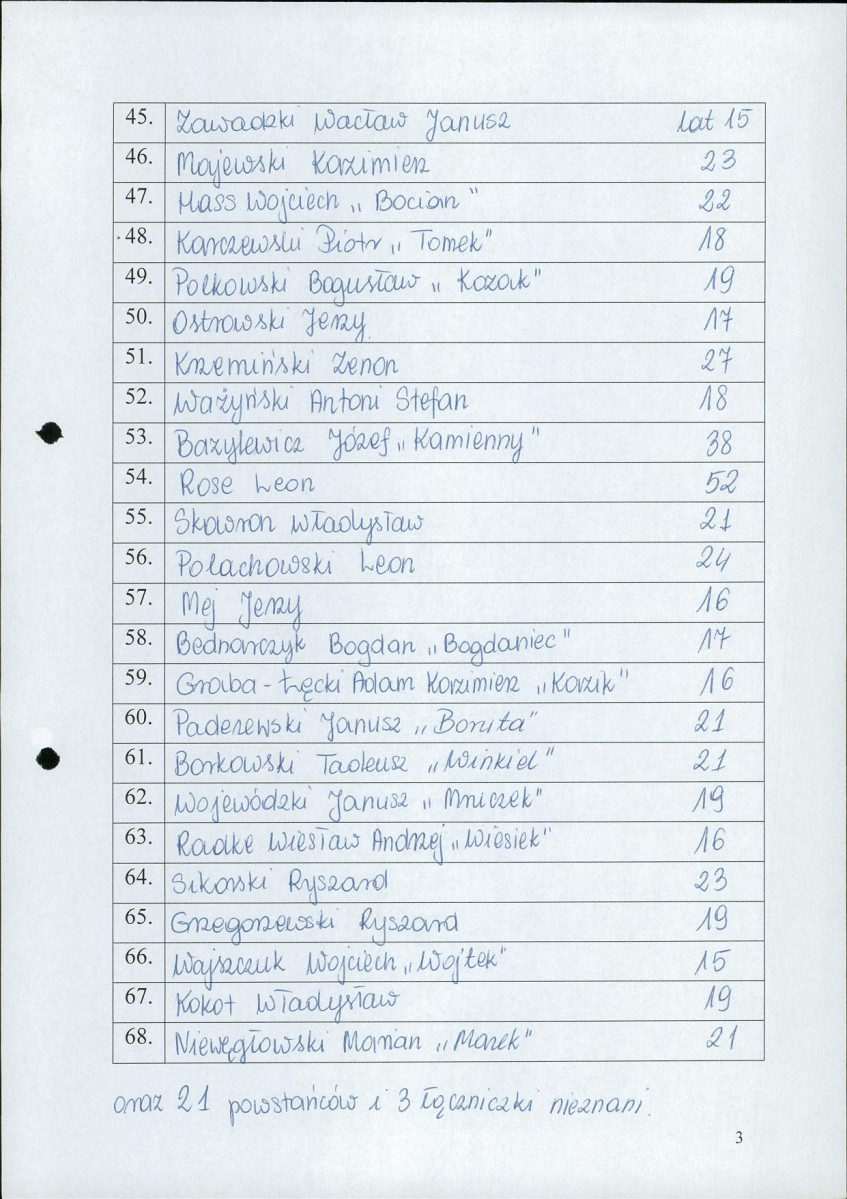 45. Zawadzki Wacław Janusz lat 15
46. Majewski Kazimierz 23
47. Hass Wojciech „Bocian" 22
48. Karczewski Piotr „Tomek" 18
49. Polkowski Bogusław „Kozak" 19
50. Ostrowski Jerzy 17
51. Krzemiński Zenon 27
52. Ważyński Antoni Stefan 18
53. Bazylewicz Józef „Kamienny" 38
54. Rose Leon 52
55. Skowron Władysław 21
56. Polachowski Leon 24
57. Mej Jerzy 16
58. Bednarczyk Bogdan „Bogdaniec" 17
59. Graba-Łęcki Adam Kazimierz „Kazik" 16
60. Paderewski Janusz „Boruta" 21
61. Borkowski Tadeusz „Winkiel" 21
62. Wojewódzki Janusz „Mruczek" 19
63. Radke Wiesław Andrzej „Wiesiek" 16
64. Sikorski Ryszard 23
65. Grzegorzewski Ryszard 19
66. Wajszczuk Wojciech „Wojtek" 15
67. Kokot Władysław 19
68. Niewęgłowski Marian „Marek" 21
oraz 21 powstańców i 3 łączniczki nieznani.
3